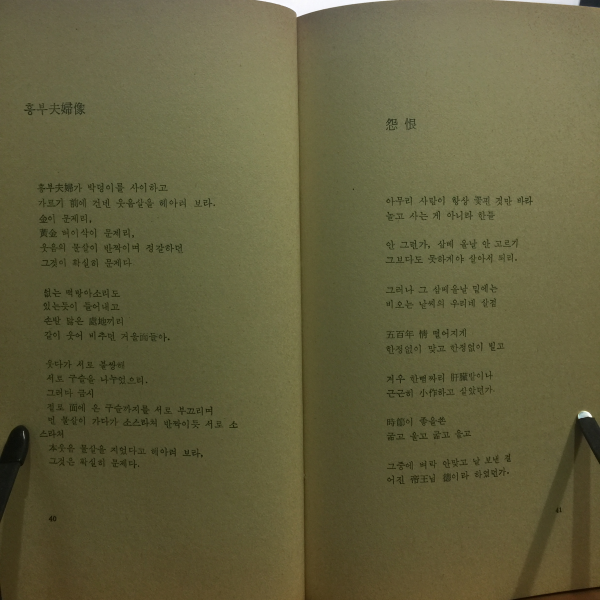 흥부夫婦像
흥부夫婦가 박덩이를 사이하고
가르기 前에 건넨 웃음살을 헤아려 보라.
金이 문제리,
黃金 벼이삭이 문제리,
웃음의 물살이 반짝이며 정갈하던
그것이 확실히 문제다.
없는 떡방아소리도
있는듯이 들어내고
손발 닳은 處地끼리
같이 웃어 비추던 거울面들아.
웃다가 서로 불쌍해
서로 구슬을 나누었으리.
그러다 금시
절로 面에 온 구슬까지를 서로 부끄리며
먼 물살이 가다가 소스라쳐 반짝이듯 서로 소
스라쳐
本웃음 물살을 지었다고 헤아려 보라,
그것은 확실히 문제다.
40
怨恨
아무리 사람이 항상 꽃진 것만 바라
놓고 사는 게 아니라 한들
안 그런가, 삼베 올날 안 고르기
그보다도 못하게야 살아서 되리.
그러나 그 삼베올날 밑에는
비오는 날씨의 우리네 살점
五百年 情 떨어지게
한정없이 맞고 한정없이 빌고
겨우 한뼘짜리 肝臟밭이나
근근히 小作하고 살았던가.
時節이 좋을쏜
굶고 울고 굶고 울고
그중에 벼락 안맞고 날 보낸 걸
어진 帝王님 德이라 하였던가.
41